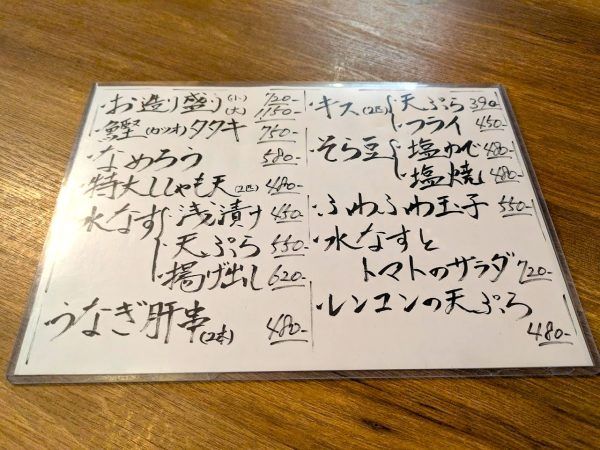 ・お造り盛り(小) 720-
(大) 1150-
・鰹(カツオ)タタキ 750-
・なめろう 580-
・特大ししゃも天(2匹) 480-
水なす 浅漬け 450-
・天ぷら 550-
・揚げ出し 620-
うなぎ肝串(2本) 480-
・キス(2匹) 天ぷら 390-
・フライ 450-
・そら豆 塩ゆで 480-
塩焼 480-
・ふわふわ玉子 550-
・水なすと
トマトのサラダ 720-
・レンコンの天ぷら
480-